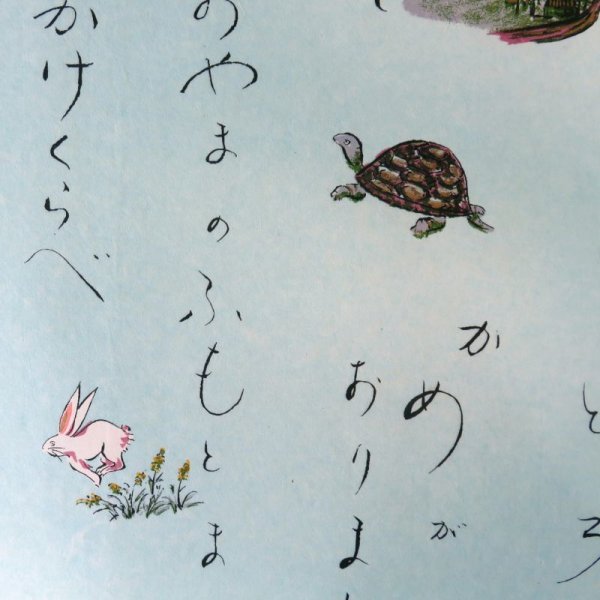 かめが
おりま
のやまのふもとま
かけくらべ